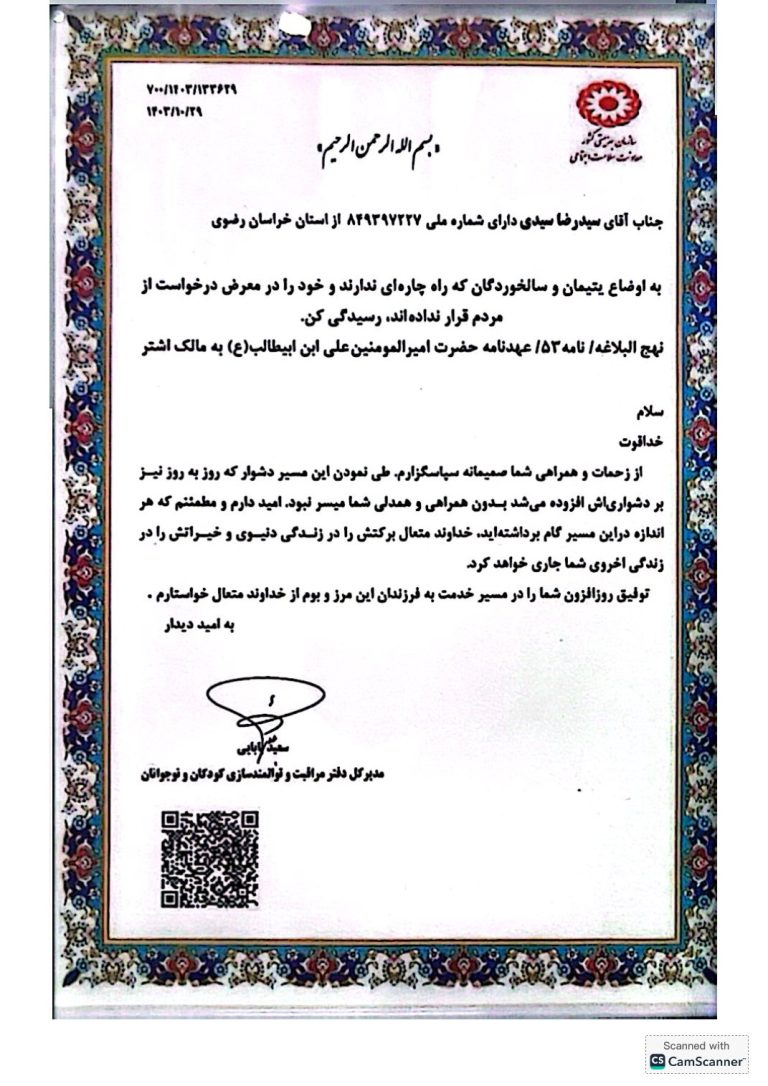 ۷۰۰/۱۴۰۳/۱۳۳۶۲۹
۱۴۰۳/۱۰/۲۹
سازمان بهزیستی کشور
معاونت سلامت اجتماعی
«بسم الله الرحمن الرحیم»
جناب آقای سیدرضا سیدی دارای شماره ملی ۸۴۹۳۹۷۲۲۷ از استان خراسان رضوی
به اوضاع یتیمان و سالخوردگان که راه چاره‌ای ندارند و خود را در معرض درخواست از
مردم قرار نداده‌اند، رسیدگی کن.
نهج البلاغه/ نامه۵۳/ عهدنامه حضرت امیرالمومنین‌علی ابن ابیطالب(ع) به مالک اشتر
سلام
خداقوت
از زحمات و همراهی شما صمیمانه سپاسگزارم. طی نمودن این مسیر دشوار که روز به روز نیـز
بر دشواری‌اش افزوده می‌شد بـدون همراهی و همدلی شما میسر نبود. امید دارم و مطمئنم که هر
اندازه دراین مسیر گام برداشته‌اید، خداوند متعال برکتش را در زنـدگی دنیـوی و خیـراتش را در
زندگی اخروی شما جاری خواهد کرد.
توفیق روزافزون شما را در مسیر خدمت به فرزندان این مرز و بوم از خداوند متعال خواستارم .
به امید دیدار
سعید بابایی
مدیرکل دفتر مراقبت و توانمندسازی کودکان و نوجوانان
Scanned with
CS CamScanner